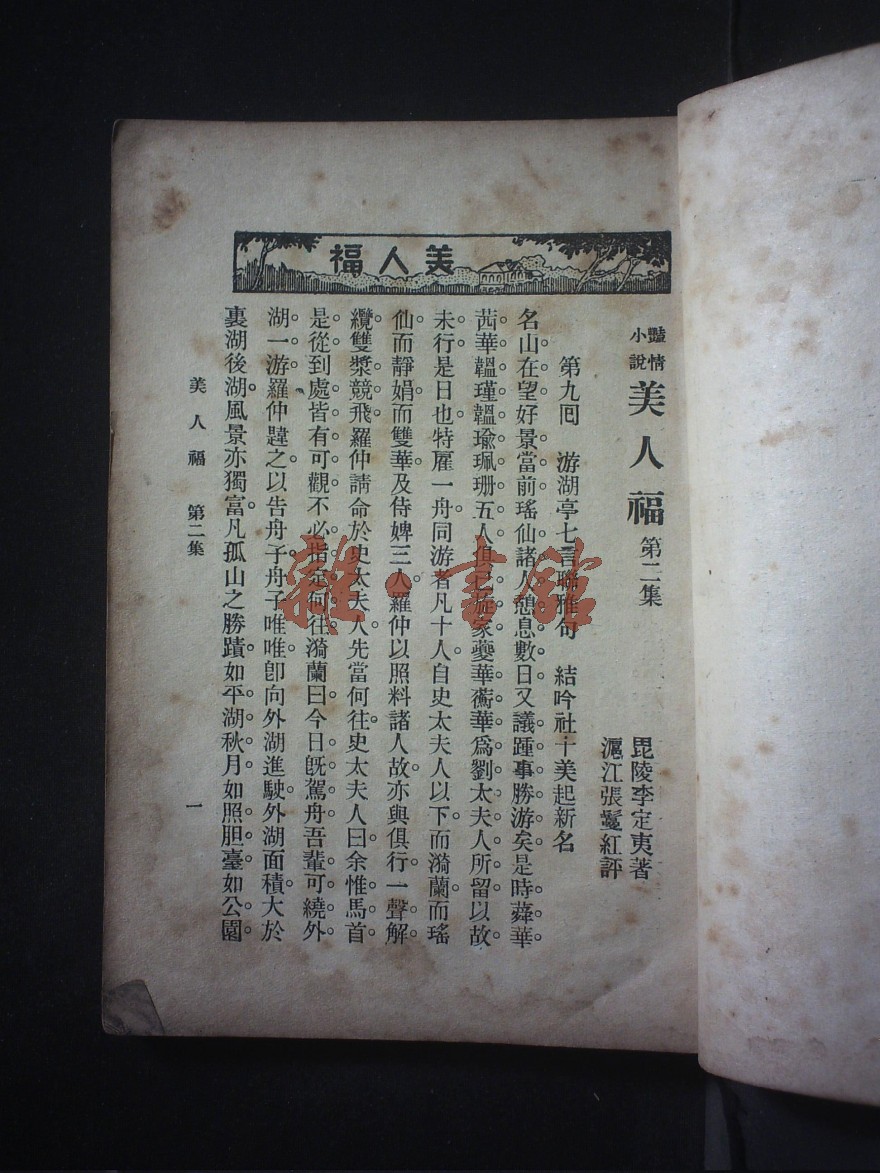 美人福
艷情小說 美人福 第二集
毘陵李定夷著
滬江張鬘紅評
第九囘 游湖亭七言聯雅句 結吟社十美起新名
名山在望好景當前瑤仙諸人憩息數日又議踵事勝游矣是時蕣華
茜華韞瑾韞瑜珮珊五人俱已旋家夔華蘅華爲劉太夫人所留以故
未行是日也特雇一舟同游者凡十人自史太夫人以下而漪蘭而瑤
仙而靜娟而雙華及侍婢三人羅仲以照料諸人故亦與俱行一聲解
纜雙槳競飛羅仲請命於史太夫人先當何往史太夫人曰余惟馬首
是從到處皆有可觀不必指定何往漪蘭曰今日旣駕舟吾輩可繞外
湖一游羅仲韙之以告舟子舟子唯唯卽向外湖進駛外湖面積大於
裏湖後湖風景亦獨富凡孤山之勝蹟如平湖秋月如照胆臺如公園
美人福 第二集 一
雜·書館